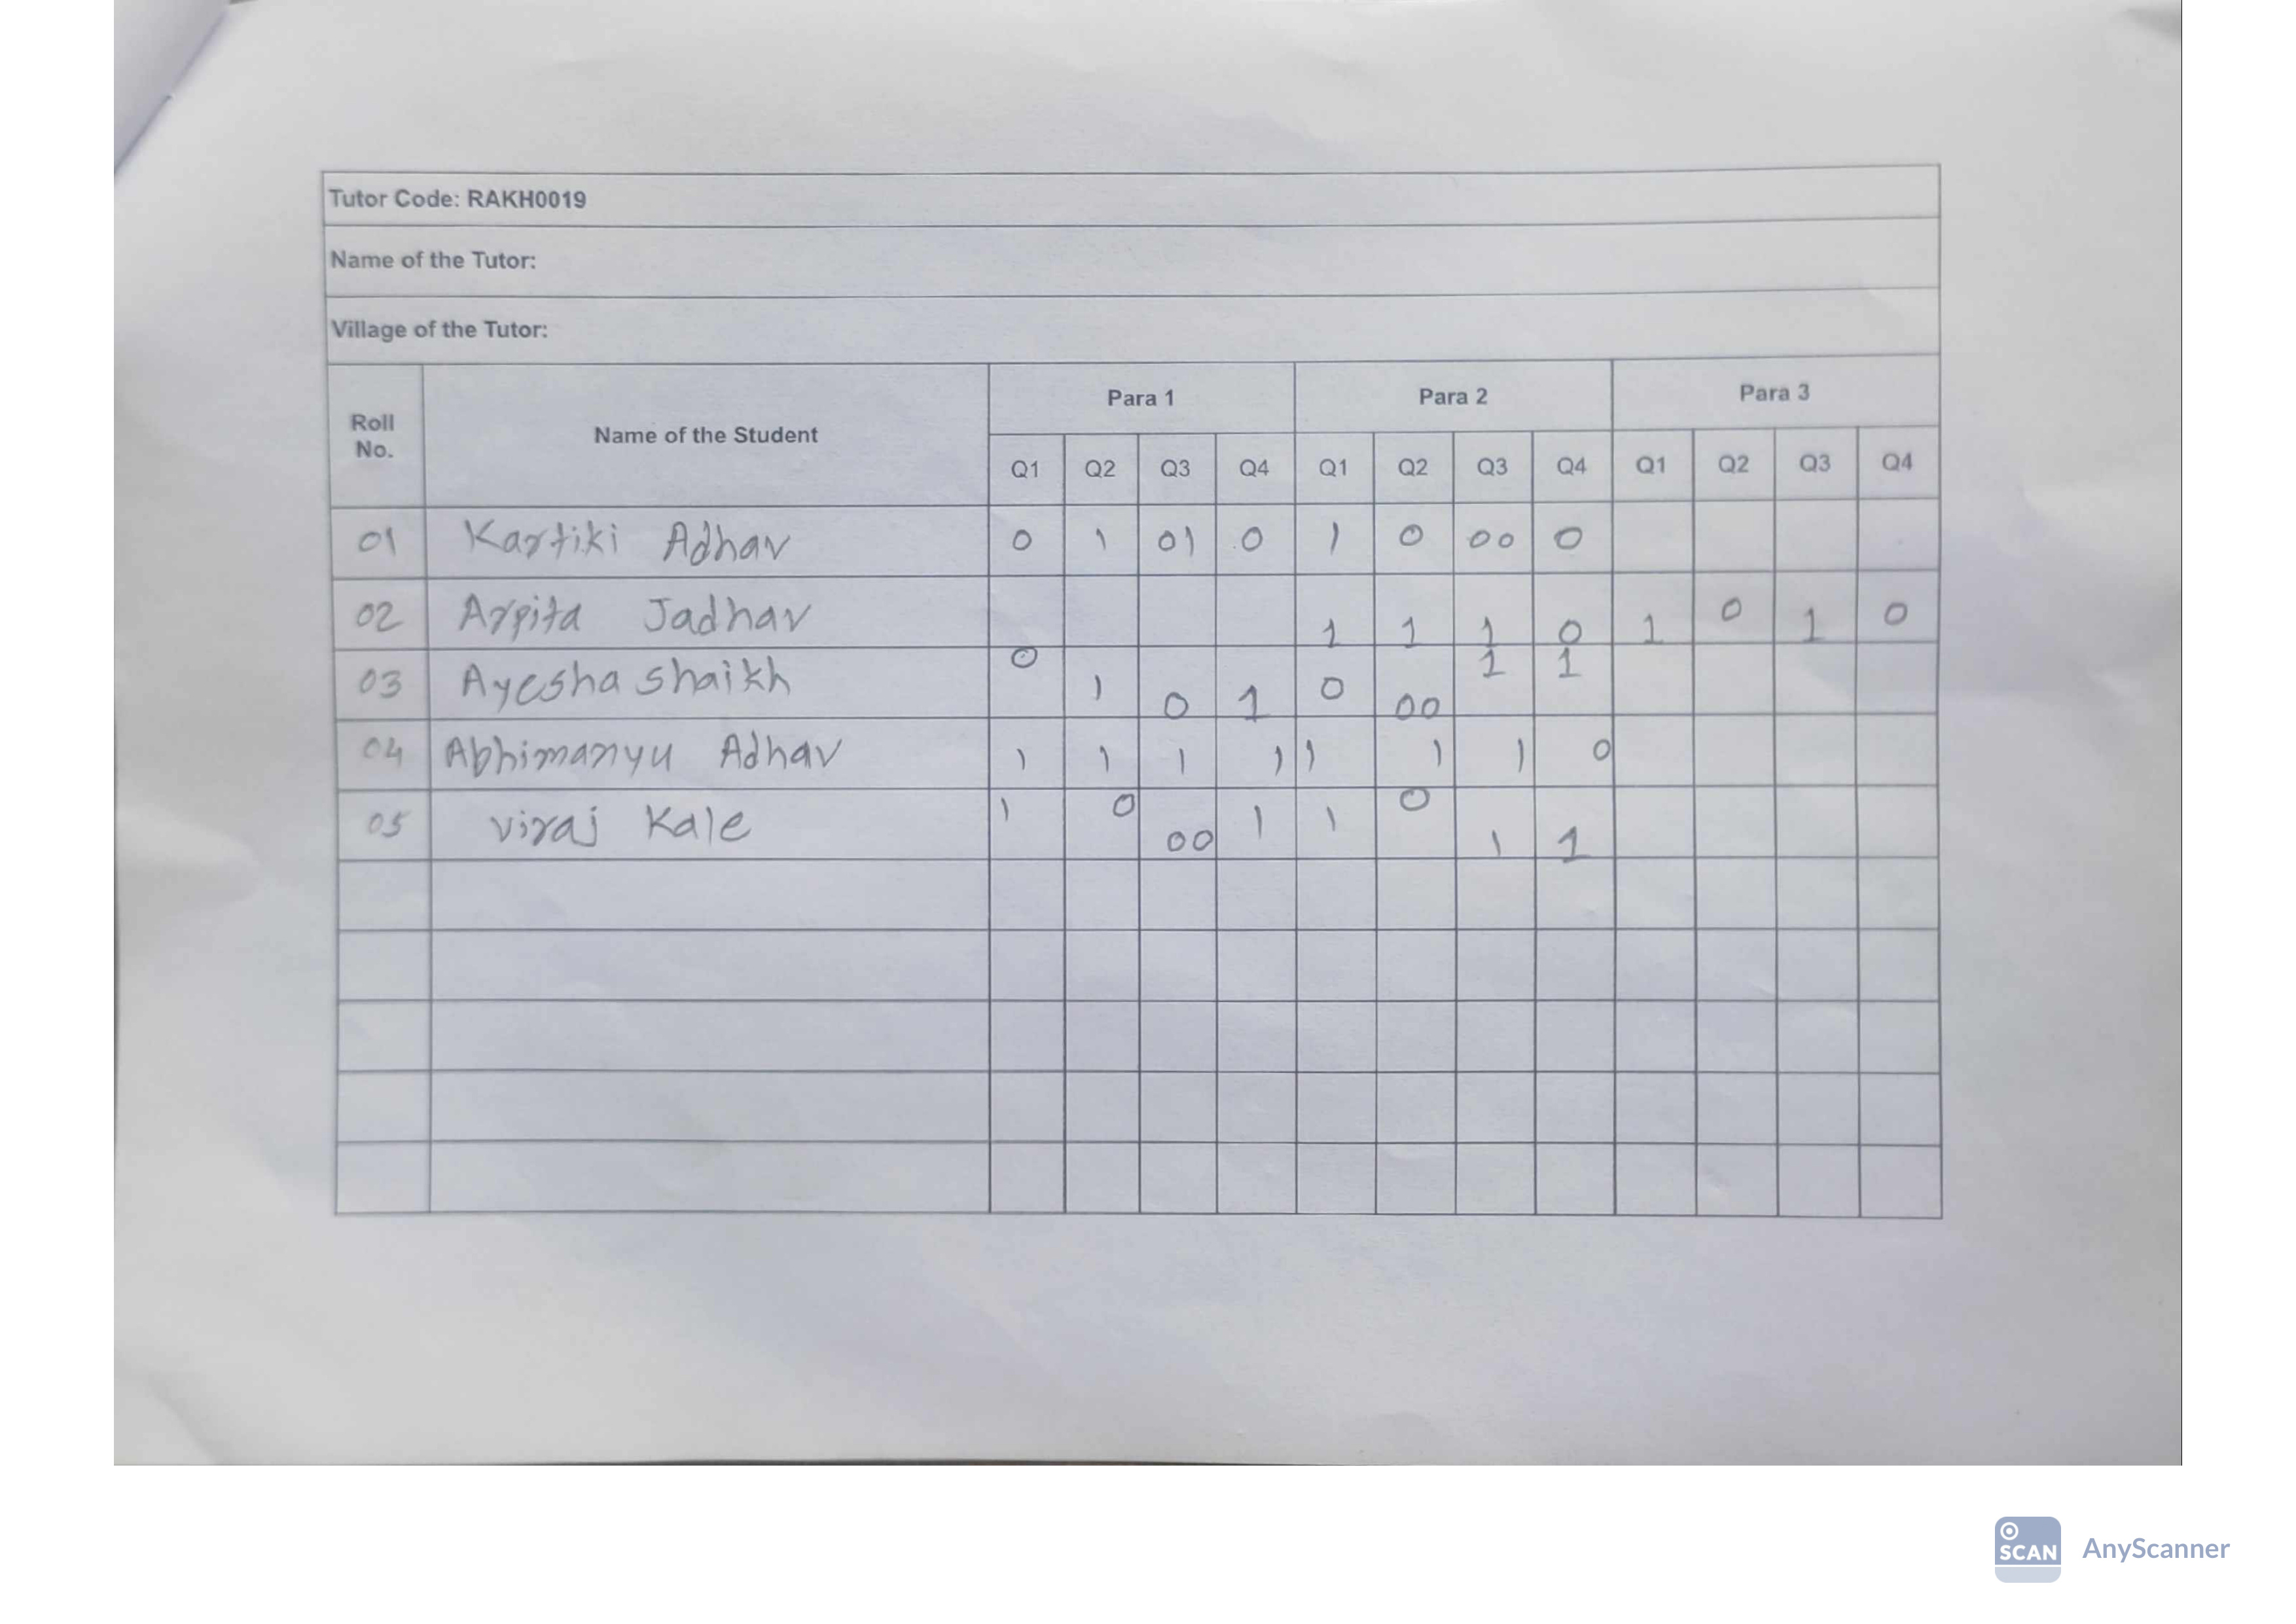 Tutor Code: RAKH0019
Name of the Tutor:
Village of the Tutor:
Roll No. Name of the Student Para 1 Para 2 Para 3
Q1 Q2 Q3 Q4 Q1 Q2 Q3 Q4 Q1 Q2 Q3 Q4
01 Kartiki Adhav 0 1 01 0 1 0 00 0
02 Arpita Jadhav 1 1 1 0 1 0 1 0
03 Ayesha shaikh 0 1 0 1 0 00 1 1
04 Abhimanyu Adhav 1 1 1 1 1 1 1 0
05 viraj Kale 1 0 00 1 1 0 1 1
SCAN AnyScanner